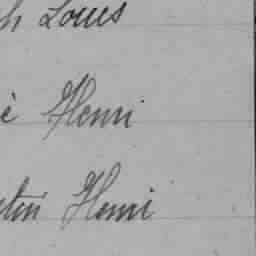 h Louis
è Henri
tin Henri